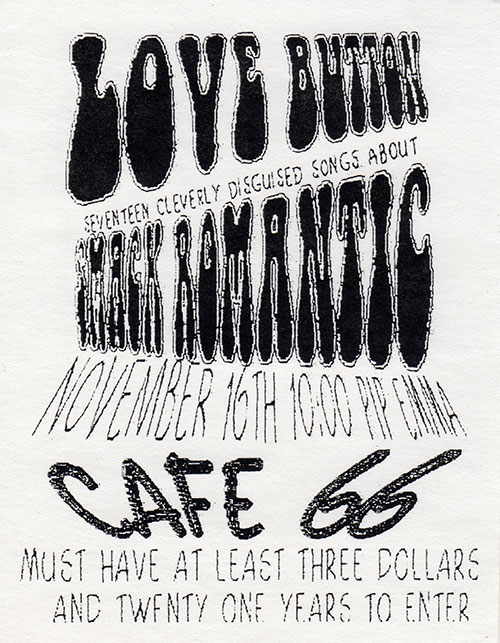 LOVE BUTTON
SEVENTEEN CLEVERLY DISGUISED SONGS ABOUT
SMACK ROMANTIC
NOVEMBER 16TH 10:00 PIP EMMA
CAFE 66
MUST HAVE AT LEAST THREE DOLLARS
AND TWENTY ONE YEARS TO ENTER